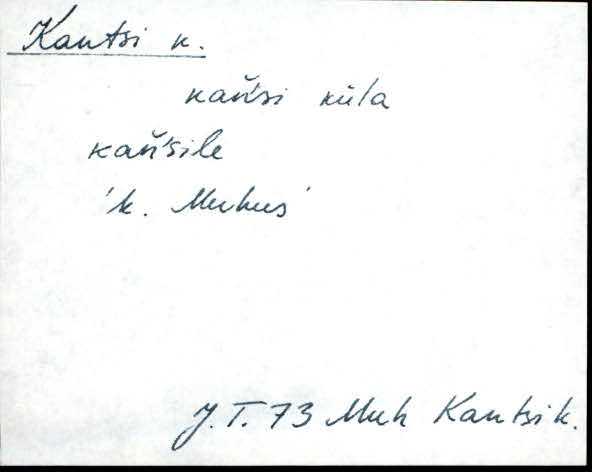 Kantsi k.
kan̆si küla
kan̆sile
'k. Muhus'
J. T. 73 Muh Kantsi k.